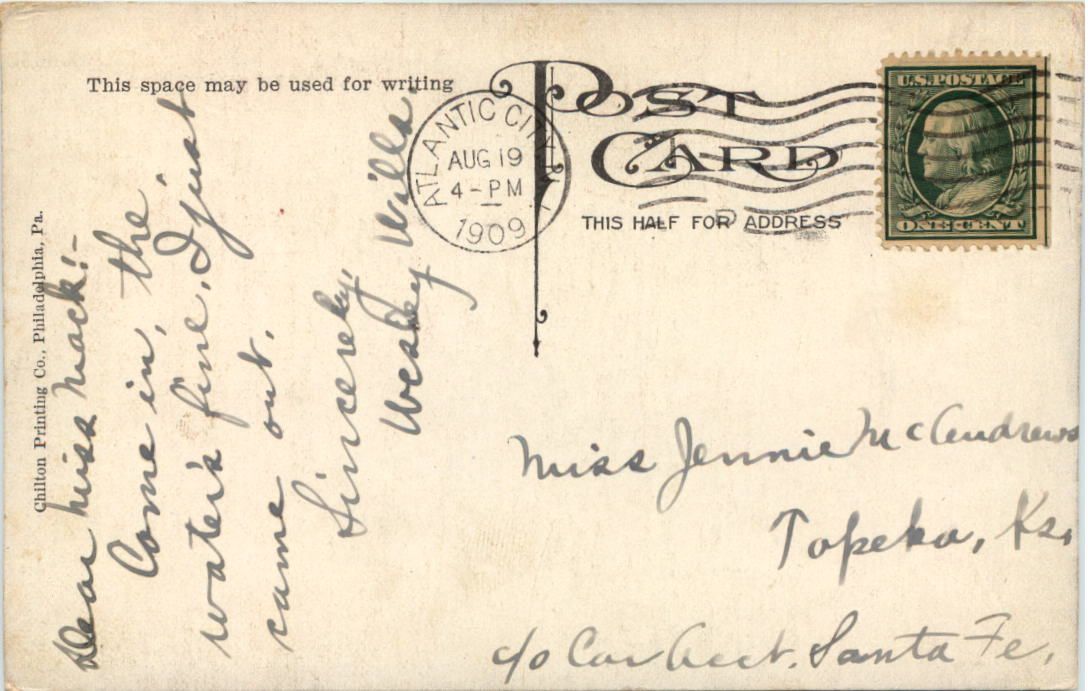 This space may be used for writing
POST
CARD
THIS HALF FOR ADDRESS
ATLANTIC CITY, N.J.
AUG 19
4-PM
1909
U.S. POSTAGE
ONE CENT
Chilton Printing Co., Philadelphia, Pa.
Dear Miss Mack:-
Come in, the
water's fine. I just
came out.
Sincerely,
Wesley Wills
Miss Jennie McAndrews
Topeka, Ks.
c/o Car Acct. Santa Fe.